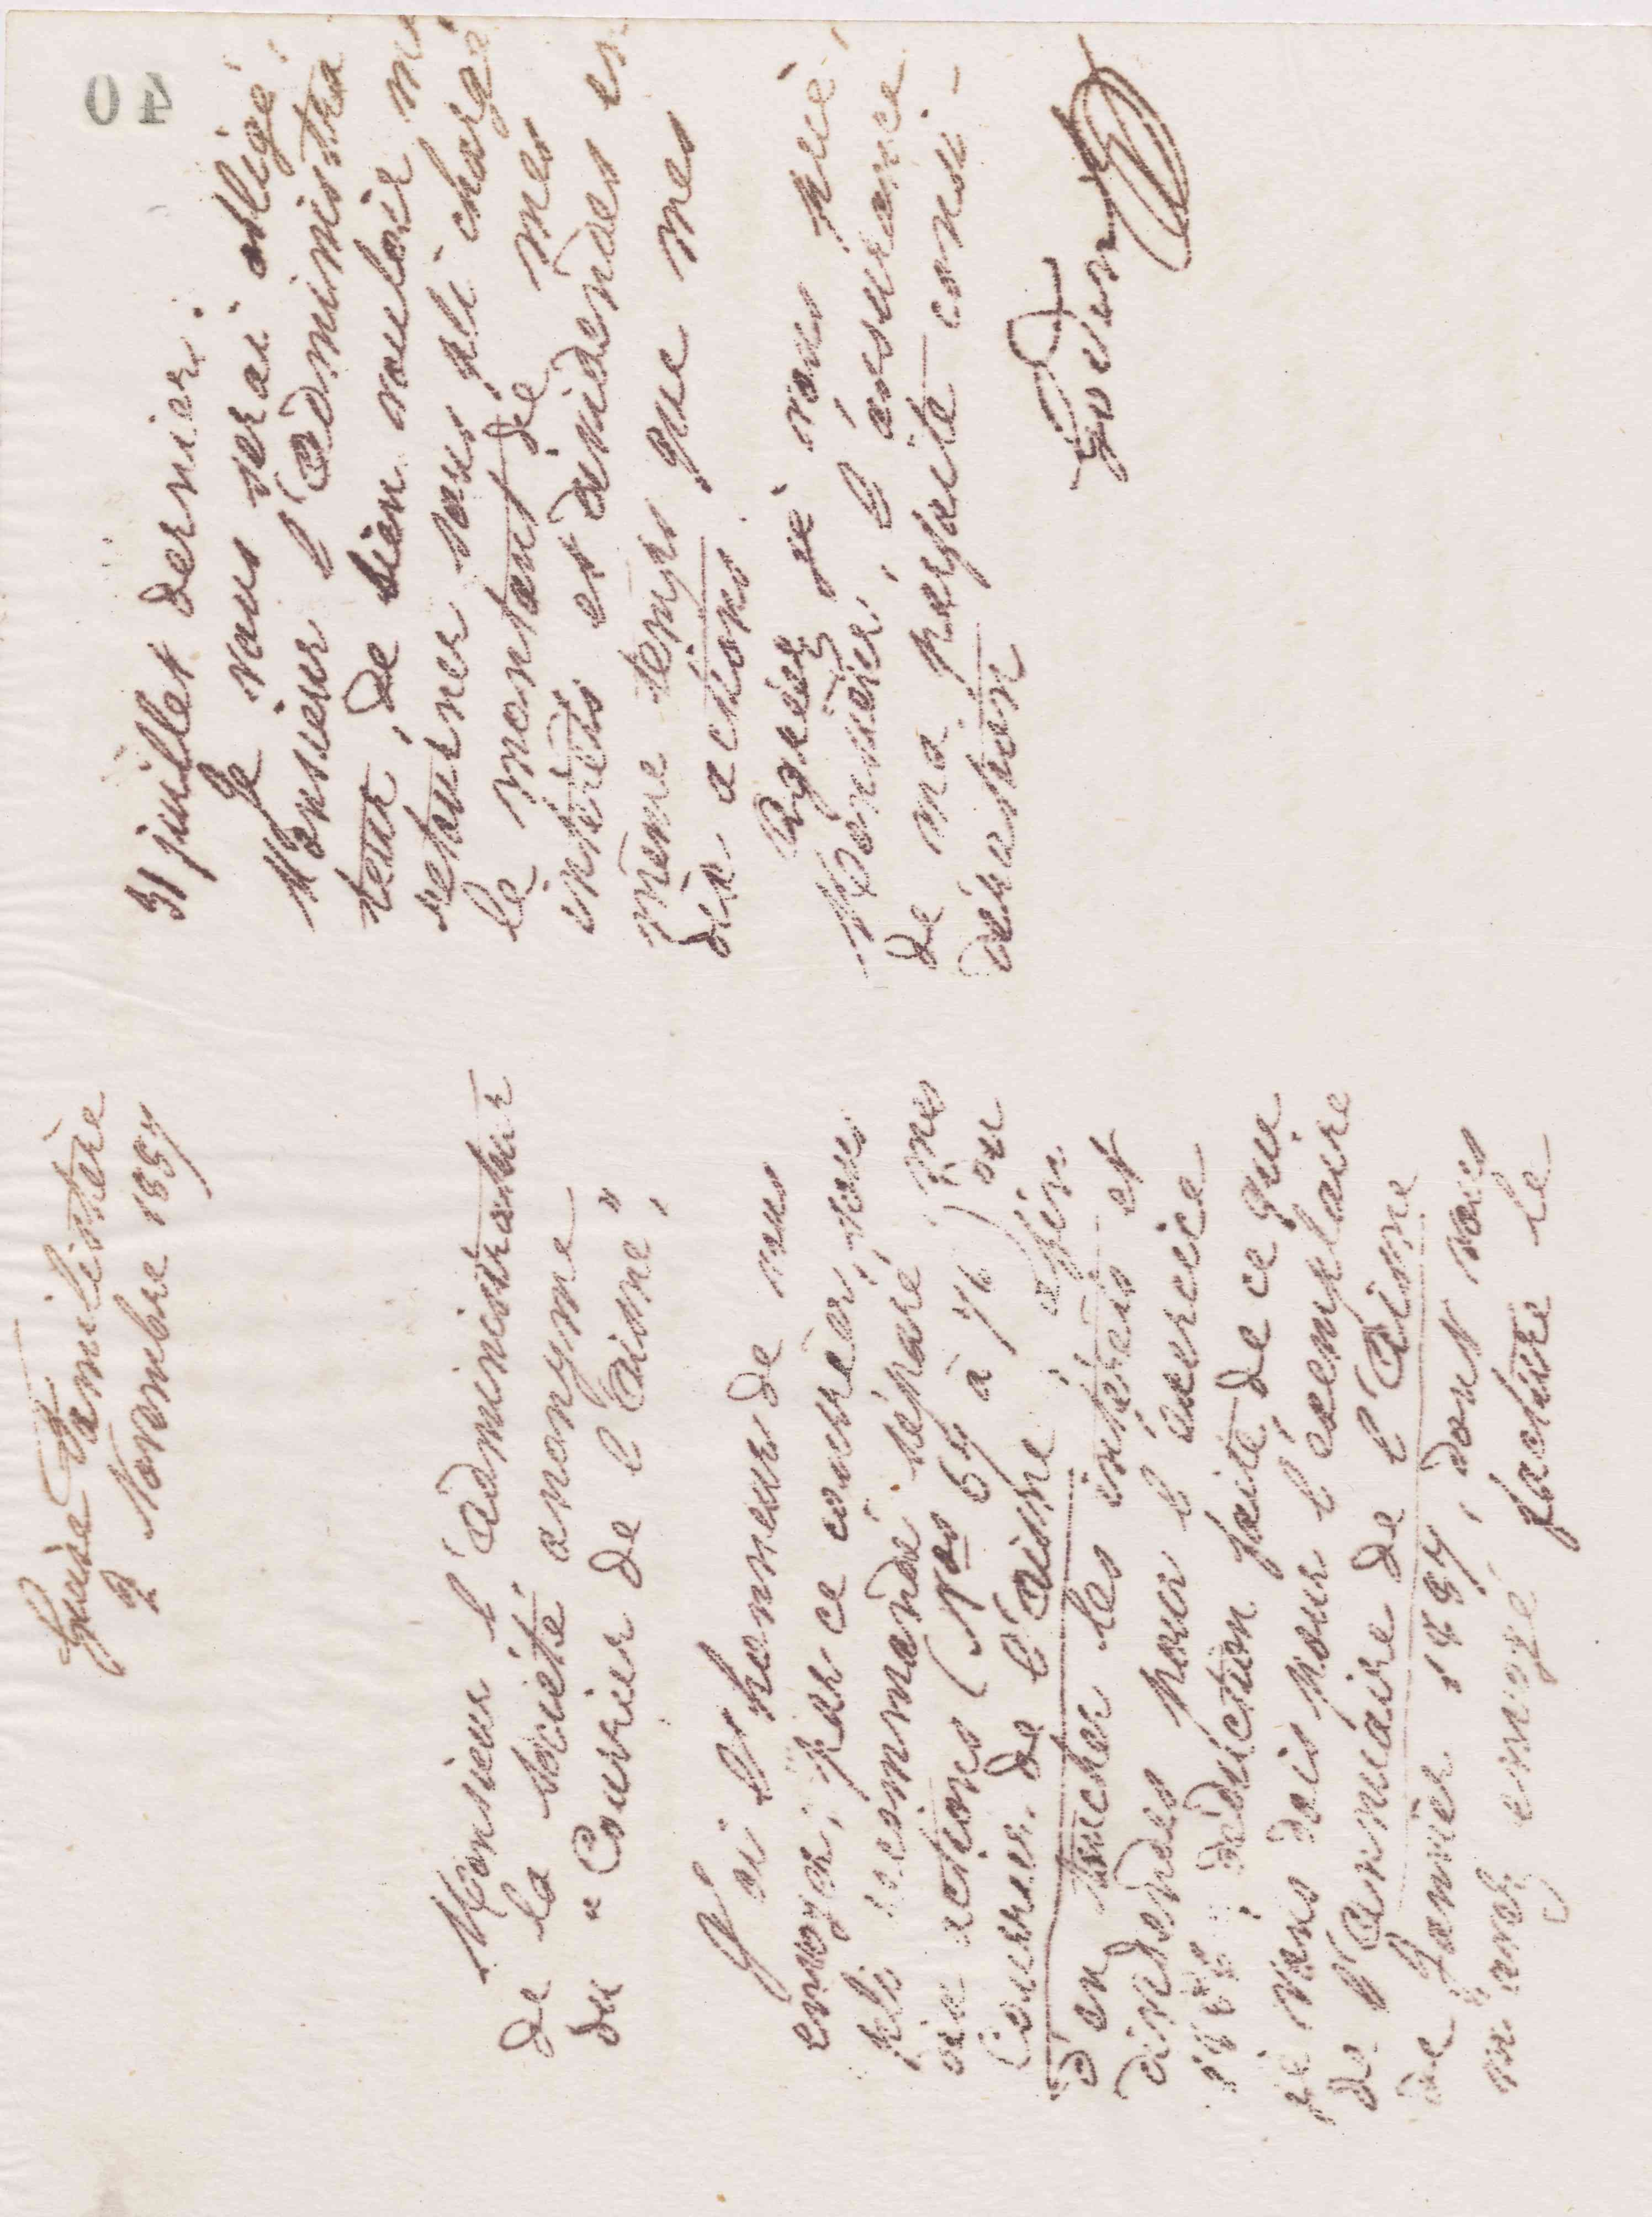 Guise Familistère
2 Novembre 1887
Monsieur l'administrateur
de la société anonyme
du "Courrier de l'Aisne",
J'ai l'honneur de vous
envoyer, par ce courrier, sous
pli recommandé séparé, mes
dix actions (Nos 67 à 76) du
Courrier de l'Aisne, afin
d'en toucher les intérêts et
dividendes pour l'exercice
déduction faite, de ce que
je vous dois pour l'exemplaire
de l'Annuaire de l'Aisne
de Janvier 1887, dont vous
m'avez envoyé facture le
31 juillet dernier.
Je vous serai obligé,
Monsieur l'Administra
teur, de bien vouloir me
retourner sous pli chargé
le montant de mes
intérêts et dividendes en
même temps que mes
dix actions.
Agréez, je vous prie,
Monsieur, l'assurance
de ma parfaite consi-
dération
Godin
40